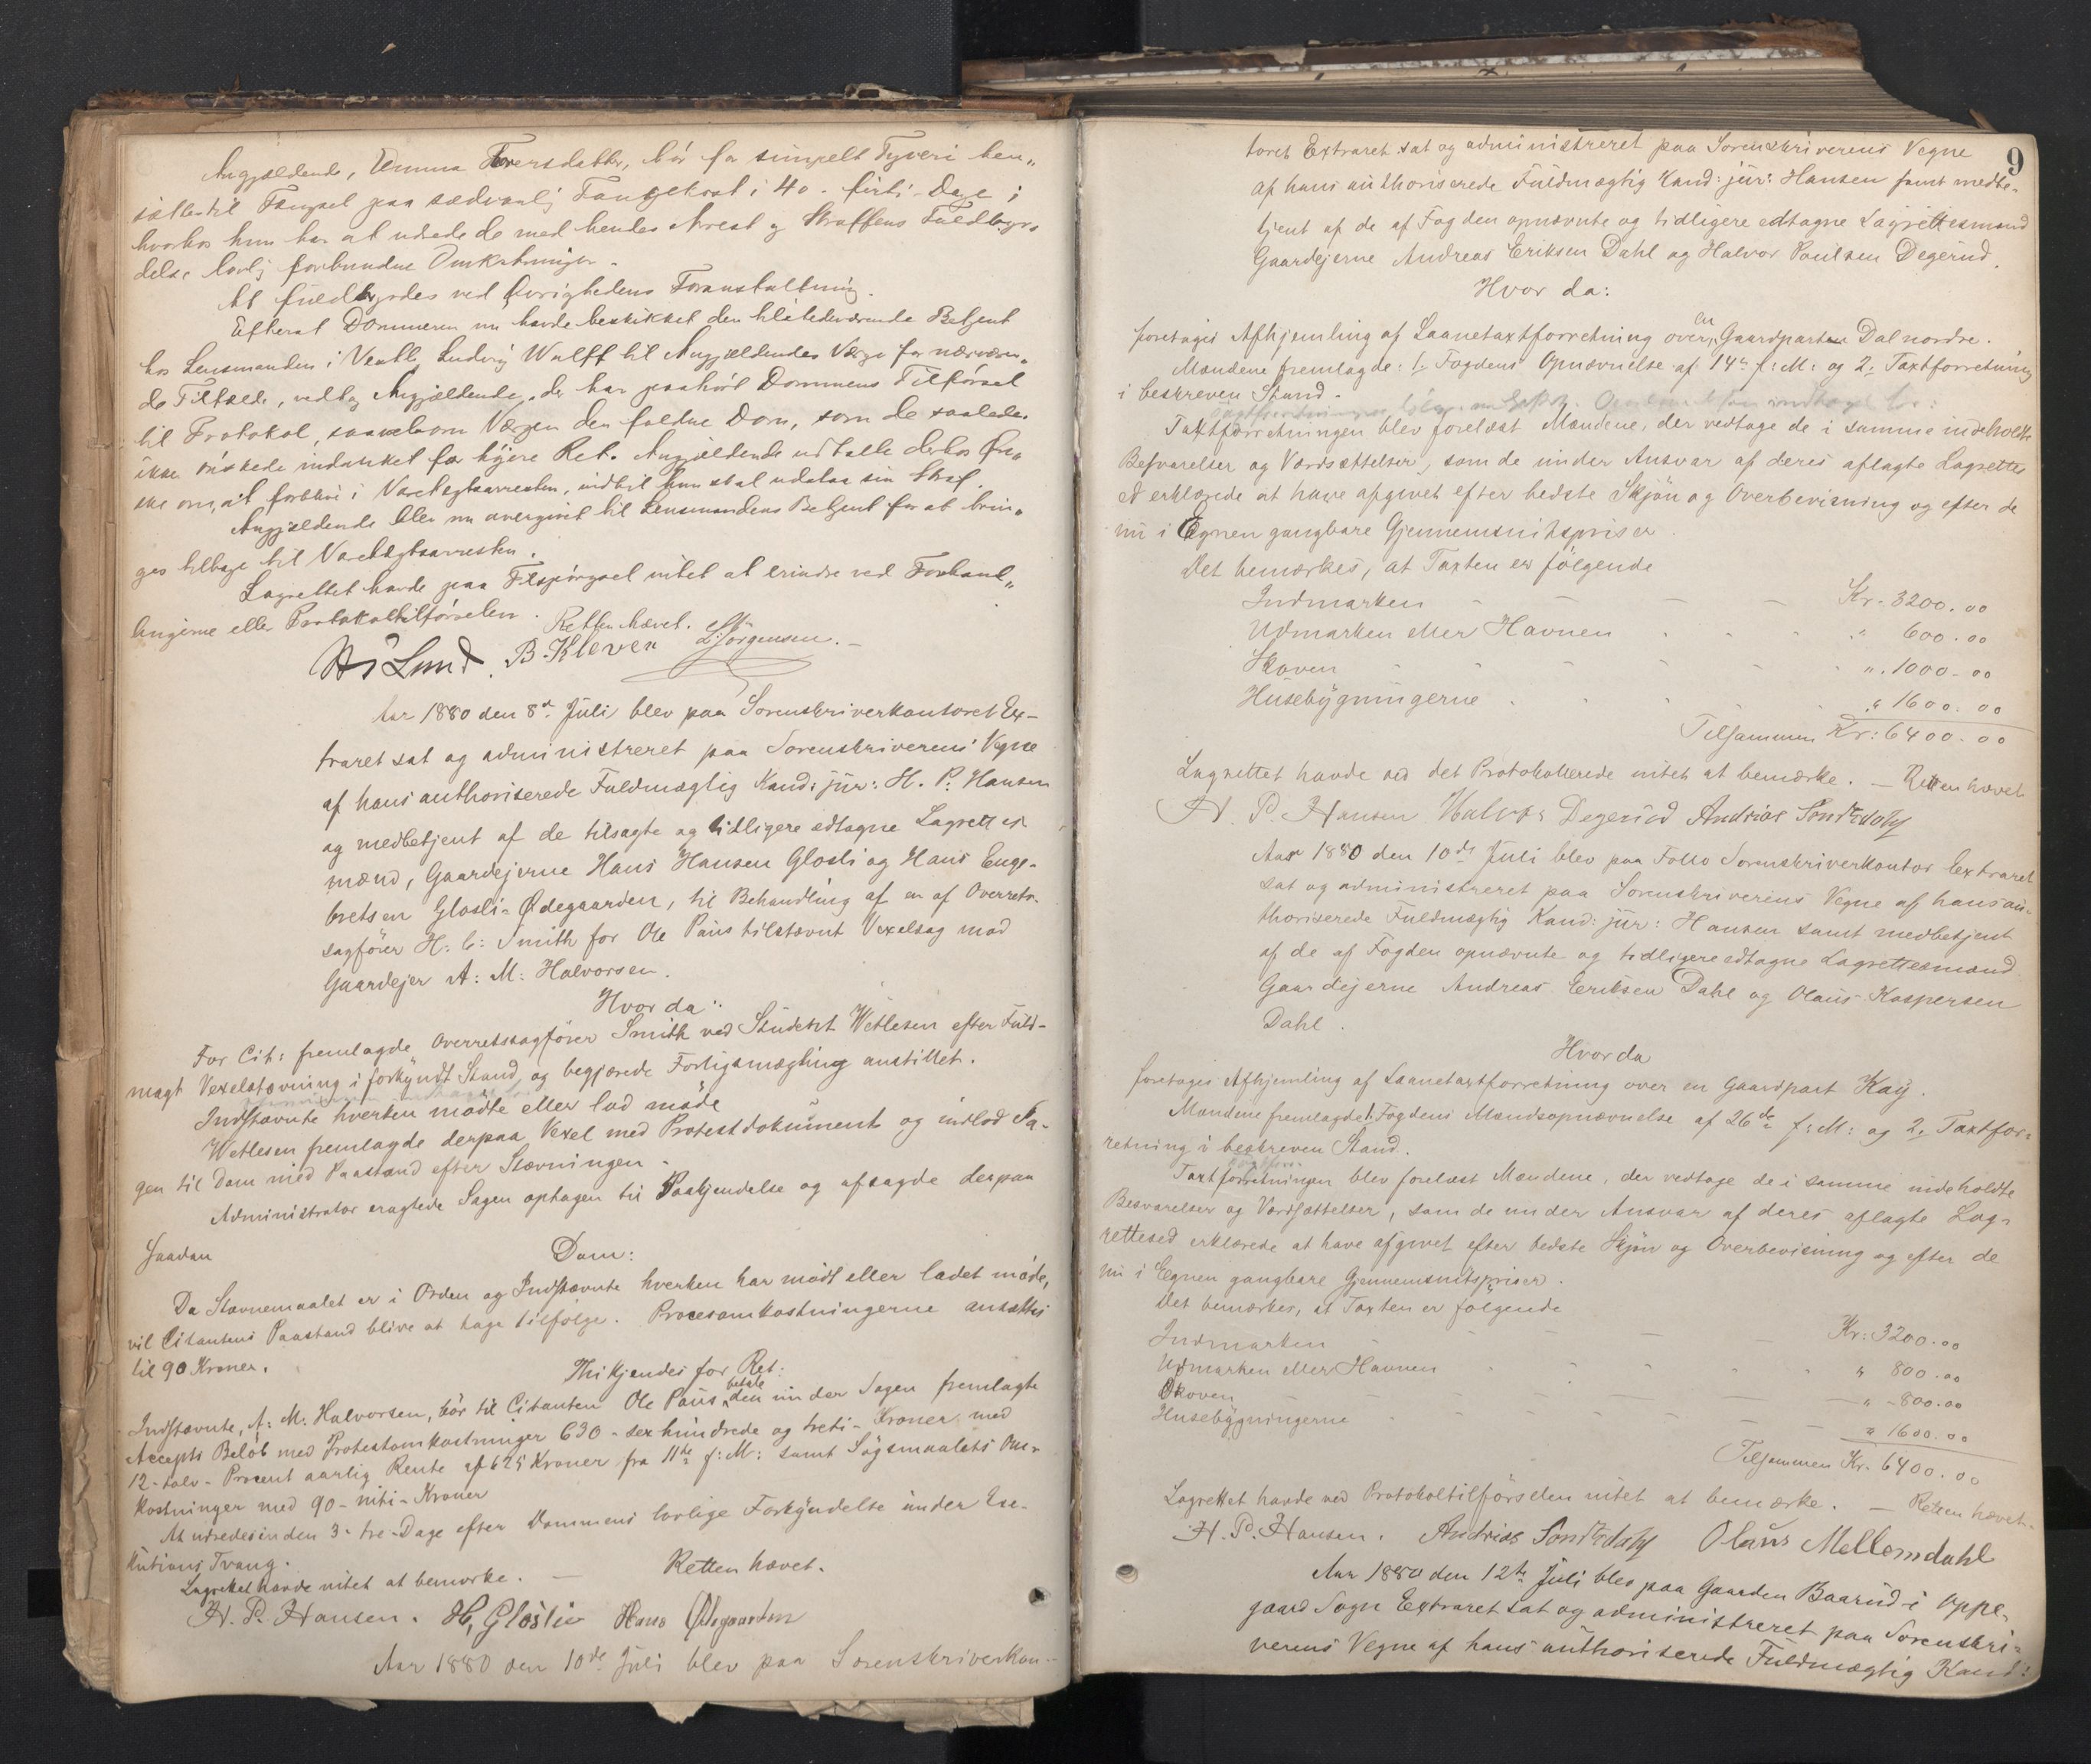 Angjældende, Emma Iversdatter, bør for simpelt Tyveri hen„
sættes til Fængsel paa sædvanlig Fangekost i 40 - firti - Dage;
hvorhos hun har at udrede de med hendes Arrest og Straffens Fuldbyr„
delse lovlig forbundne Omkostninger.
At fuldbyrdes ved Øvrighedens Foranstaltning.
Efterat Dommeren nu havde beskikket den tilstedeværende Betjent
hos Lensmanden i Vestby Ludvig Wulff til Angjældendes Værge for nærværen„
de Tilfælde, vedtog Angjældende, der har paahørt Dommens Tilførsel
til Protokol, saavelsom Værgen den faldne Dom, som de saaledes
ikke ønskede indanket for høiere Ret. Angjældende udtalte derhos Øn„
ske om, at forblive i Varetægtsarresten, indtil hun skal udstaa sin Straf.
Angjældende blev nu overgivet til Lensmandens Betjent for at brin„
ges tilbage til Varetægtsarresten.
Lagrettet havde paa Tilspørgsel intet at erindre ved Forhand„
lingerne eller Protokoltilførselen. Retten hævet.
Lund. B. Kleven Jørgensen.
Aar 1880 den 8de Juli blev paa Sorenskriverkontoret Ex-
traret sat og administreret paa Sorenskriverens Vegne
af hans authoriserede Fuldmægtig Kand: jur: H. P. Hansen
og medbetjent af de tilsagte og tidligere edtagne Lagrettes
mænd, Gaardejerne Hans Hansen Glosli og Hans Enge-
bretsen Glosli-Ødegaarden, til Behandling af en af Overrets-
sagfører H: C: Smith for Ole Paus tilstævnt Vexelsag mod
Gaardejer A: M: Halvorsen.
Hvor da:
For Cit: fremlagde Overretssagfører Smith ved Student Wetlesen efter Fuld-
magt Vexelstævning i forkyndt Stand og begjærede Forligsmægling anstillet.
Indstævnte hverken mødte eller lod møde
Wetlesen fremlagde derpaa Vexel med Protestdokument og indlod Sa-
gen til Dom med Paastand efter Stævningen.
Administrator eragtede Sagen optagen til Paakjendelse og afsagde derpaa
saadan
Dom:
Da Stævnemaalet er i Orden og Indstævnte hverken har mødt eller ladet møde,
vil Citantens Paastand blive at tage tilfølge. Procesomkostningerne ansættes
til 90 Kroner.
Thi kjendes for Ret:
Indstævnte, A: M: Halvorsen, bør til Citanten Ole Paus betale den under Sagen fremlagte
Accepts Beløb med Protestomkostninger 630 - sexhundrede og treti - Kroner med
12 - tolv - Procent aarlig Rente af 625 Kroner fra 11te f: M: samt Søgsmaalets Om-
kostninger med 90 - niti - Kroner
At udredes inden 3 - tre - Dage efter Dommens lovlige Forkyndelse under Exe-
kutions Tvang.
Lagrettet havde intet at bemærke. — Retten hævet.
H. P. Hansen. H, Gloslie Hans Ødegaarden
Aar 1880 den 10de Juli blev paa Sorenskriverkon-
9
toret Extraret sat og administreret paa Sorenskriverens Vegne
af hans authoriserede Fuldmægtig Kand: jur: Hansen samt medbe-
tjent af de af Fogden opnævnte og tidligere edtagne Lagrettesmænd
Gaardejerne Andreas Eriksen Dahl og Halvor Poulsen Degerud.
Hvor da:
foretoges Afhjemling af Laanetaxtforretning over en Gaardpart Dal nordre.
Mændene fremlagde: 1. Fogdens Opnævnelse af 14de f: M: og 2. Taxtforretning
i beskreven Stand.
Taxtforretningen blev forelæst Mændene, der vedtoge de i samme indeholdte
Besvarelser og Værdsættelser, som de under Ansvar af deres aflagte Lagrettes
ed erklærede at have afgivet efter bedste Skjøn og Overbevisning og efter de
nu i Egnen gangbare Gjennemsnitspriser.
Det bemærkes, at Taxten er følgende
Indmarken - - - Kr. 3200.00
Udmarken eller Havnen . . . „ 600.00
Skoven - - - „ 1000.00
Husebygningerne . . . „ 1600.00
Tilsammen Kr: 6400.00
Lagrettet havde ved det Protokollerede intet at bemærke. — Retten hævet
H. P. Hansen Halvor Degerud Andrias Sondredahl
Aar 1880 den 10de Juli blev paa Follo Sorenskriverkontor Extraret
sat og administreret paa Sorenskriverens Vegne af hans au-
thoriserede Fuldmægtig Kand: jur: Hansen samt medbetjent
af de af Fogden opnævnte og tidligere edtagne Lagrettesmænd
Gaardejerne Andreas Eriksen Dahl og Olaus Kaspersen
Dahl.
Hvor da
foretoges Afhjemling af Laanetaxtforretning over en Gaardpart Kay.
Mændene fremlagde 1. Fogdens Mandsopnævnelse af 26de f: M: og 2. Taxtfor-
retning i beskreven Stand.
Taxtforretningen blev forelæst Mændene, der vedtoge de i samme indeholdte
Besvarelser og Værdsættelser, som de under Ansvar af deres aflagte Lag-
rettesed erklærede at have afgivet efter bedste Skjøn og Overbevisning og efter de
nu i Egnen gangbare Gjennemsnitspriser.
Det bemærkes, at Taxten er følgende
Indmarken - - - Kr: 3200.00
Udmarken eller Havnen . . . „ 800.00
Skoven - - - „ 800.00
Husebygningerne - - - „ 1600.00
Tilsammen Kr. 6400.00
Lagrettet havde ved Protokoltilførselen intet at bemærke. — Retten hævet.
H. P. Hansen. Andrias Sondredahl Olaus Mellemdahl
Aar 1880 den 12te Juli blev paa Gaarden Baarud i Oppe-
gaard Sogn Extraret sat og administreret paa Sorenskri-
verens Vegne af hans authoriserede Fuldmægtig Kand: